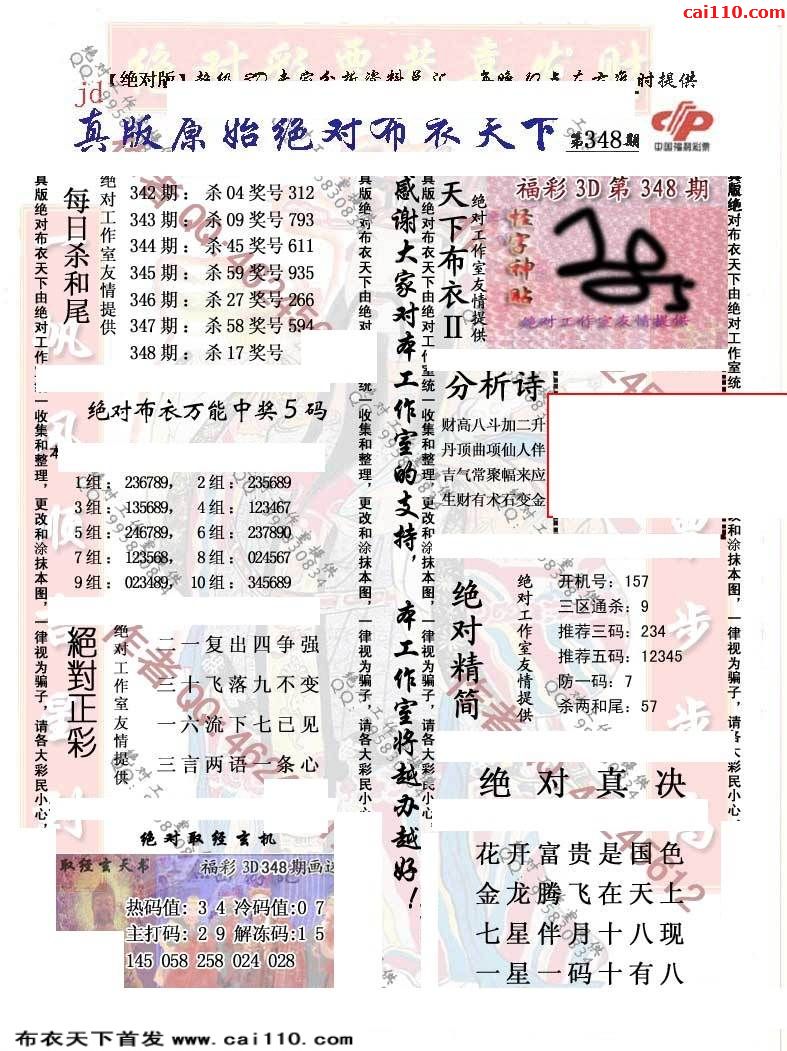 cai110.com
【绝对版】
时提供
jd
真版原始绝对布衣天下
第348期
中国福利彩票
每日杀和尾
绝对工作室友情提供
342期：杀04奖号312
343期：杀09奖号793
344期：杀45奖号611
345期：杀59奖号935
346期：杀27奖号266
347期：杀58奖号594
348期：杀17奖号
绝对布衣万能中奖5码
1组：236789， 2组：235689
3组：135689， 4组：123467
5组：246789， 6组：237890
7组：123568， 8组：024567
9组：023489， 10组：345689
絕對正彩
绝对工作室友情提供
二一复出四争强
三十飞落九不变
一六流下七已见
三言两语一条心
绝对取经玄机
取经玄天书
福彩3D348期画
热码值：3 4冷码值:0 7
主打码：2 9解冻码:1 5
145 058 258 024 028
感谢大家对本工作室的支持，本工作室将越办越好！
天下布衣II
绝对工作室友情提供
福彩3D第348期
怪字神贴
绝对工作室友情提供
分析诗
财高八斗加二升
丹顶曲项仙人伴
吉气常聚幅来应
生财有术石变金
绝对精简
绝对工作室友情提供
开机号：157
三区通杀：9
推荐三码：234
推荐五码：12345
防一码：7
杀两和尾：57
绝对真决
花开富贵是国色
金龙腾飞在天上
七星伴月十八现
一星一码十有八
真版绝对布衣天下由绝对工作
统一收集和整理，更改和涂抹本图，一律视为骗子，请各大彩民小心
布衣天下首发 www.cai110.com